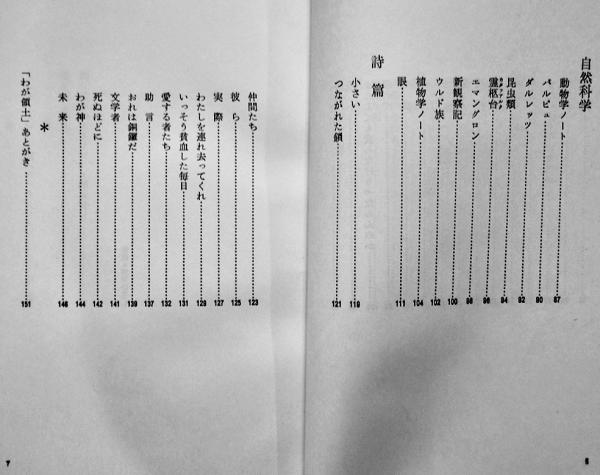 自然科学
動物学ノート 87
パルピュ 90
ダルレッツ 92
昆虫類 94
霊柩台 96
エマングロン 98
新観察記 100
ウルド族 102
植物学ノート 104
眼 111
詩篇
小さい 119
つながれた鎖 121
6
仲間たち 123
彼ら 125
実際 127
わたしを連れ去ってくれ 129
いっそう貧血した毎日 131
愛する者たち 132
助言 137
おれは銅鑼だ 139
文学者 141
死ぬほどに 142
わが神 144
未来 146
*
「わが領土」あとがき 151
7